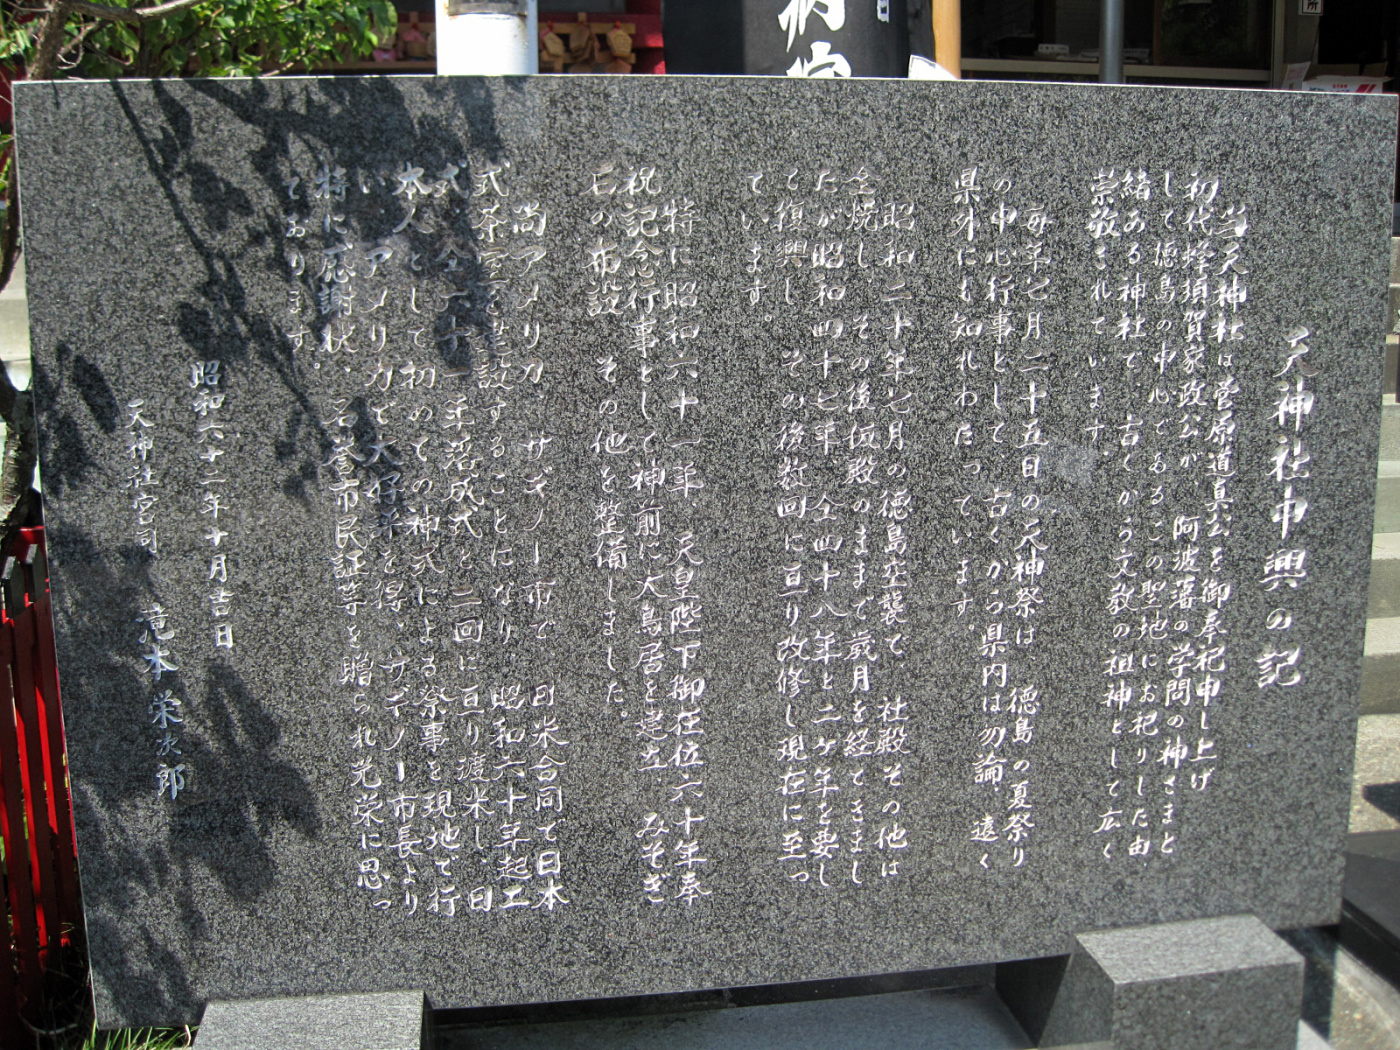 天神社中興の記
当天神社は菅原道真公を御奉祀申し上げ
初代蜂須賀家政公が、阿波藩の学問の神さまと
して徳島の中心であるこの聖地にお祀りした由
緒ある神社で、古くから文教の祖神として広く
崇敬されています。
毎年七月二十五日の天神祭は、徳島の夏祭り
の中心行事として、古くから県内は勿論、遠く
県外にも知れわたっています。
昭和二十年七月の徳島空襲で、社殿その他は
全焼し、その後仮殿のままで歳月を経てきまし
たが昭和四十七年、仝四十八年と二ヶ年を要し
て復興し、その後数回に亘り改修し現在に至っ
ています。
特に昭和六十一年、天皇陛下御在位六十年奉
祝記念行事として神前に大鳥居を建立、みそぎ
石の布設、その他を整備しました。
尚アメリカ、サギノー市で、日米合同で日本
式茶室を建設することになり、昭和六十年起工
式、仝六十一年落成式と二回に亘り渡米し、日
本人として初めての神式による祭事を現地で行
い、アメリカで大好評を得、サギノー市長より
特に感謝状、名誉市民証等を贈られ光栄に思っ
ております。
昭和六十二年十月吉日
天神社宮司 滝本栄次郎
病
所